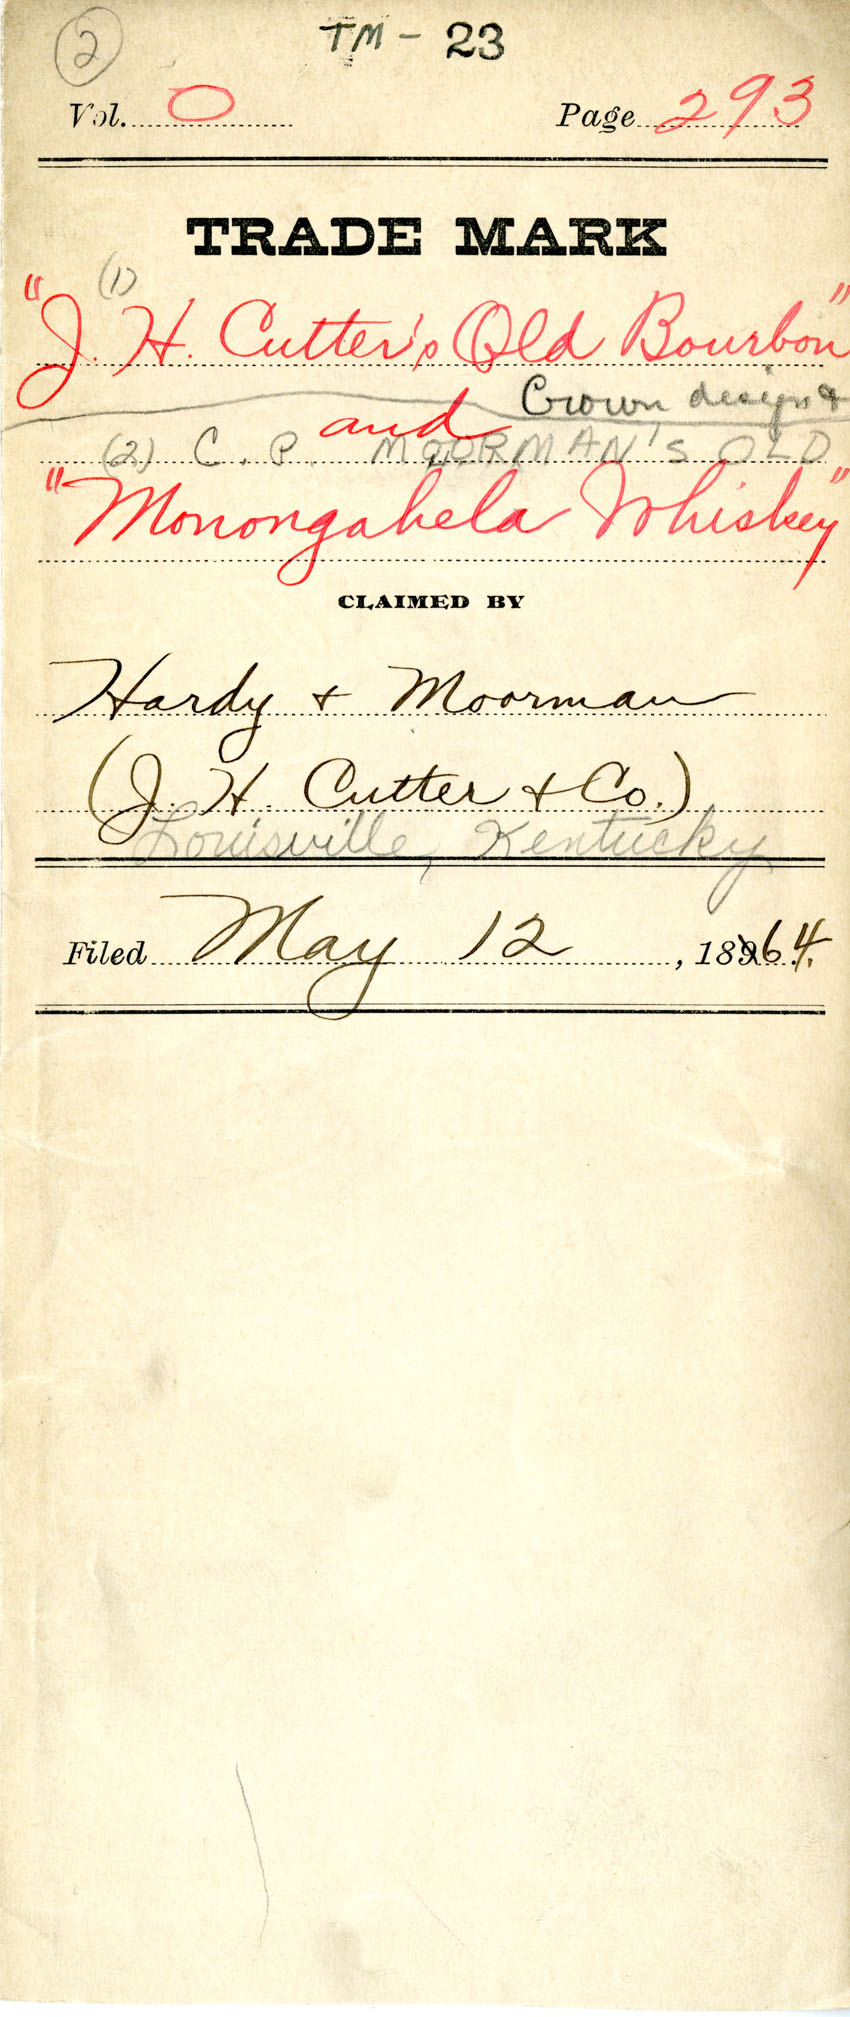 2
TM - 23
Vol. 0 Page 293
TRADE MARK
(1)
"J. H. Cutter's Old Bourbon"
Crown design &
and
(2) C. P. MOORMAN'S OLD
"Monongahela Whiskey"
CLAIMED BY
Hardy & Moorman
(J. H. Cutter & Co.)
Louisville, Kentucky
Filed May 12, 1864.